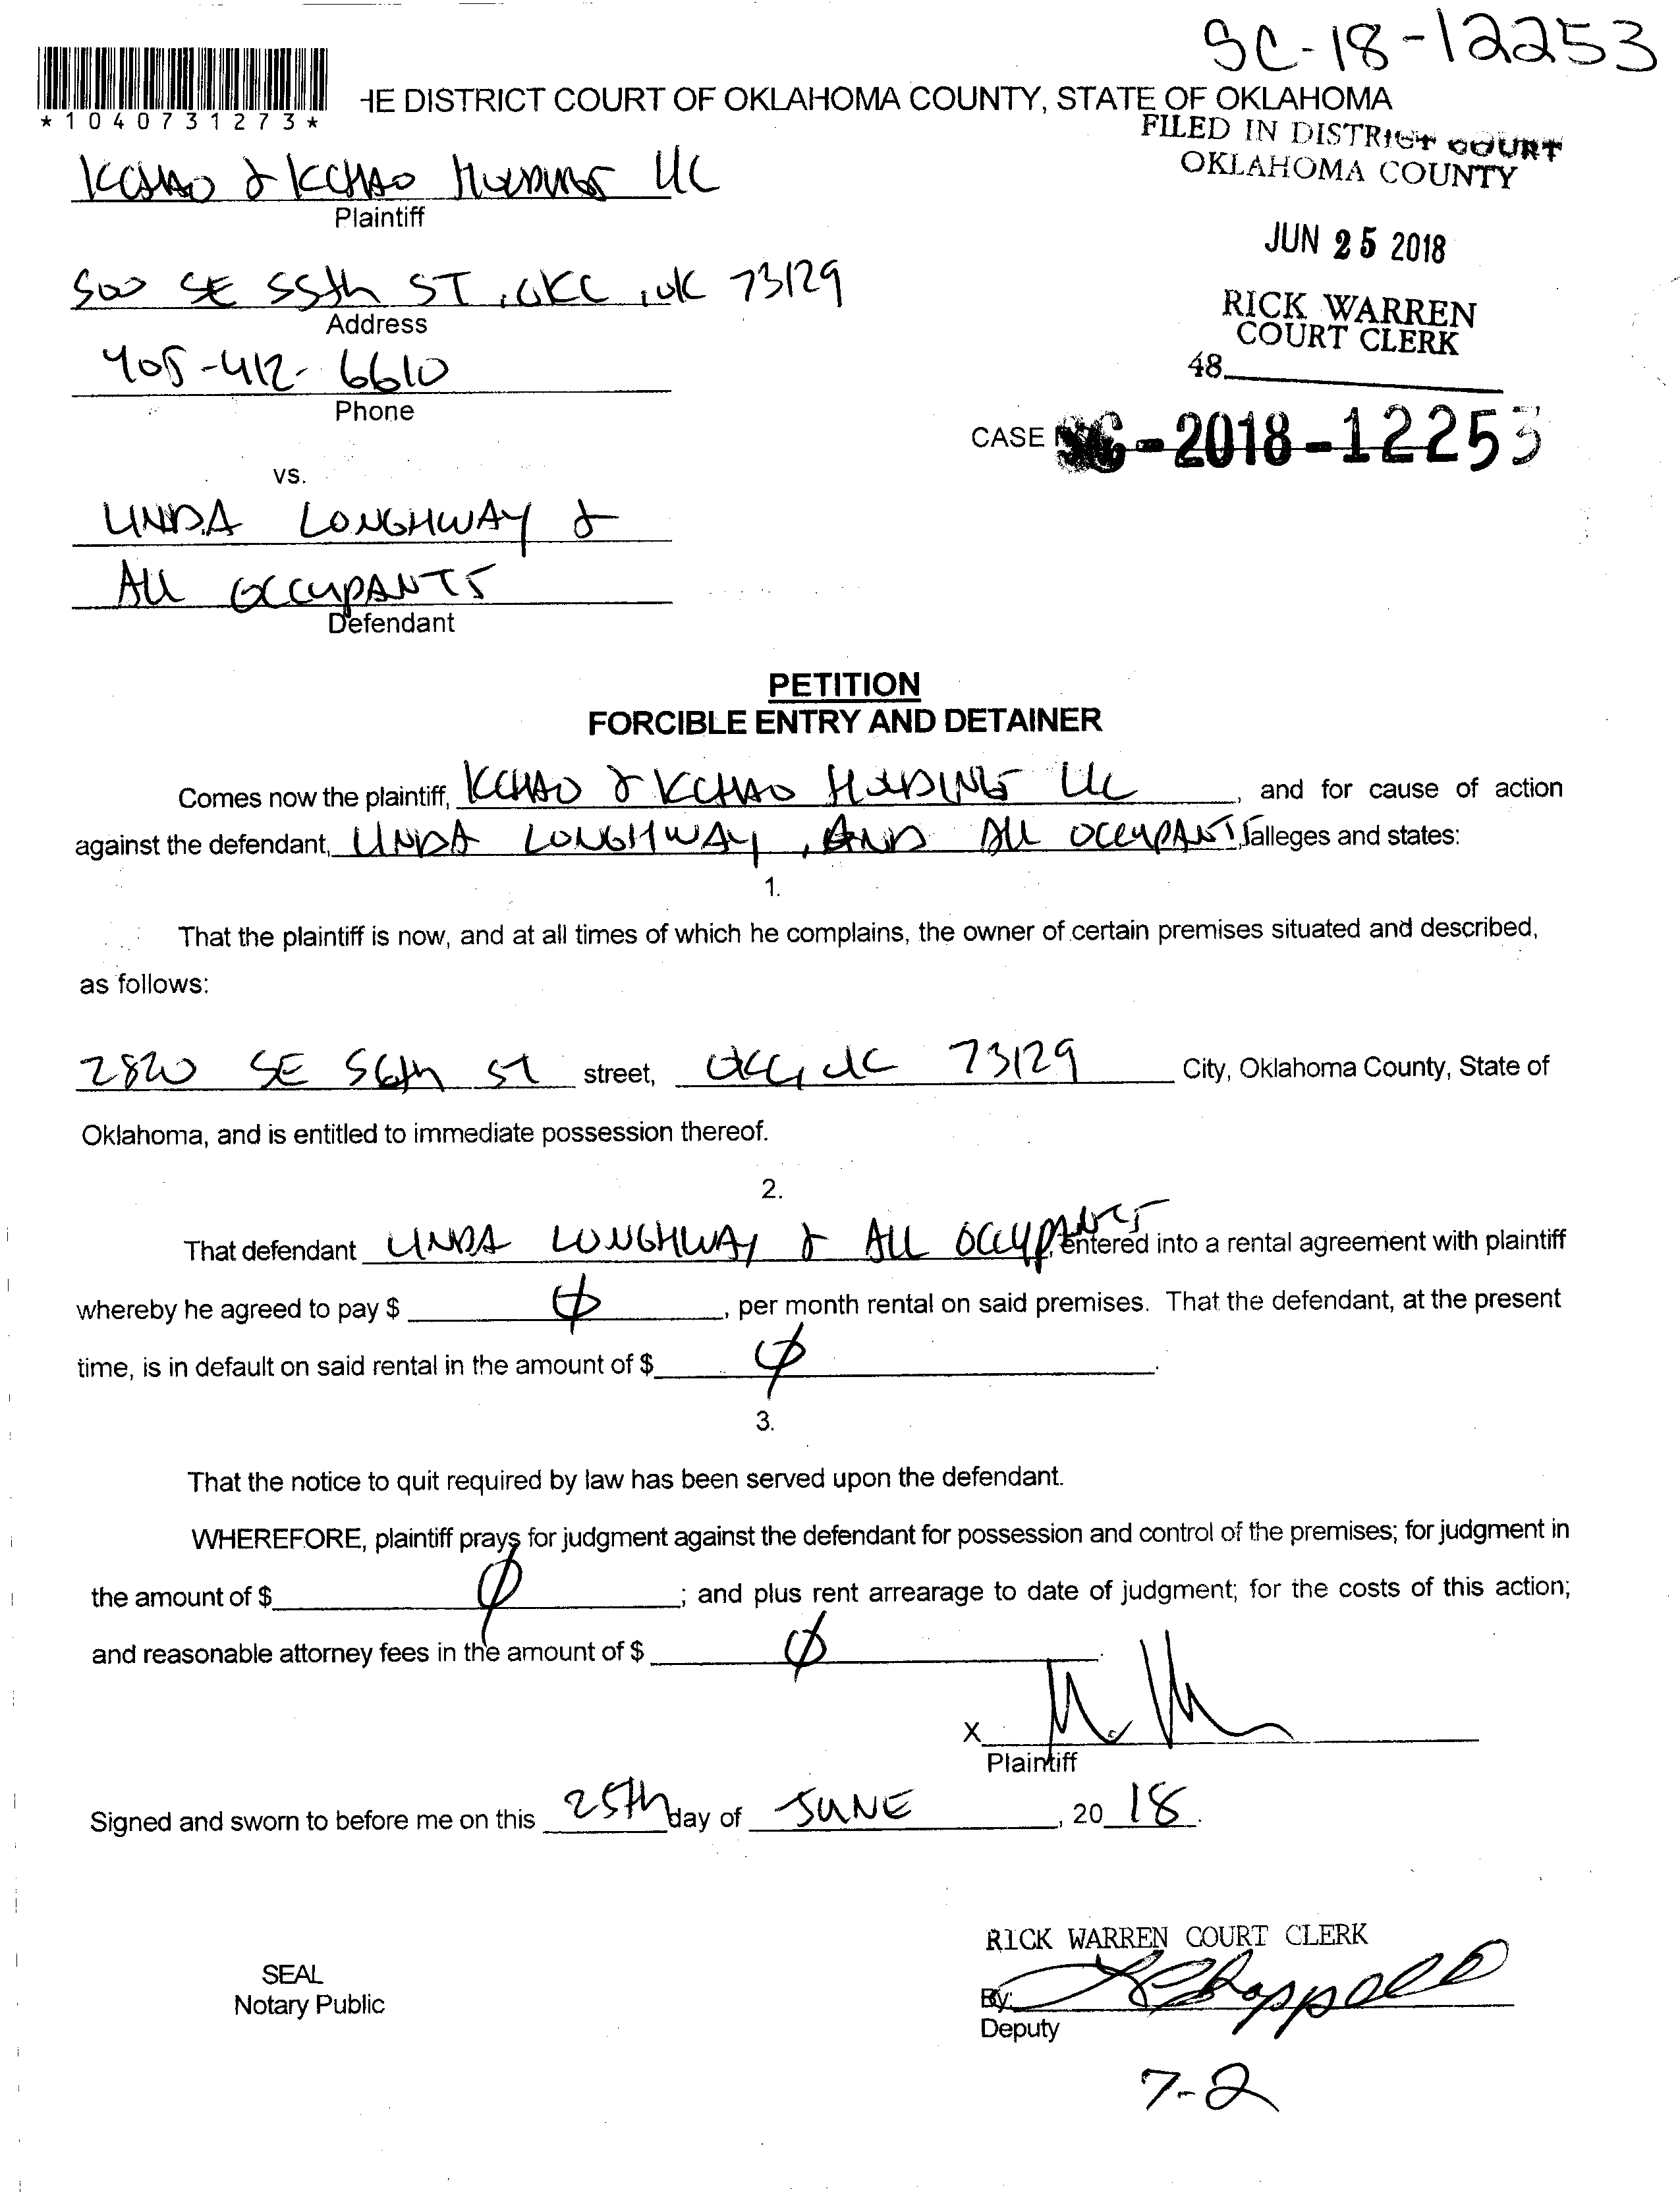 SC-18-12253
*1040731273*
HE DISTRICT COURT OF OKLAHOMA COUNTY, STATE OF OKLAHOMA
FILED IN DISTRICT COURT
OKLAHOMA COUNTY
KCHAO & KCHAO HOLDINGS LLC
Plaintiff
JUN 25 2018
500 SE 55th ST, OKC, OK 73129
Address
RICK WARREN
COURT CLERK
405-412-6610
Phone
48
CASE SC-2018-12253
vs.
LINDA LONGHWAY &
ALL OCCUPANTS
Defendant
PETITION
FORCIBLE ENTRY AND DETAINER
Comes now the plaintiff, KCHAO & KCHAO HOLDING LLC, and for cause of action
against the defendant, LINDA LONGHWAY, AND ALL OCCUPANTS alleges and states:
1.
That the plaintiff is now, and at all times of which he complains, the owner of certain premises situated and described,
as follows:
2820 SE 56th ST street, OKC, OK 73129 City, Oklahoma County, State of
Oklahoma, and is entitled to immediate possession thereof.
2.
That defendant LINDA LONGHWAY & ALL OCCUPANTS, entered into a rental agreement with plaintiff
whereby he agreed to pay $ ø, per month rental on said premises. That the defendant, at the present
time, is in default on said rental in the amount of $ ø.
3.
That the notice to quit required by law has been served upon the defendant.
WHEREFORE, plaintiff prays for judgment against the defendant for possession and control of the premises; for judgment in
the amount of $ ø; and plus rent arrearage to date of judgment; for the costs of this action;
and reasonable attorney fees in the amount of $ ø.
X
Plaintiff
Signed and sworn to before me on this 25th day of JUNE, 20 18.
RICK WARREN COURT CLERK
SEAL
Notary Public
By: Chappell
Deputy
7-2